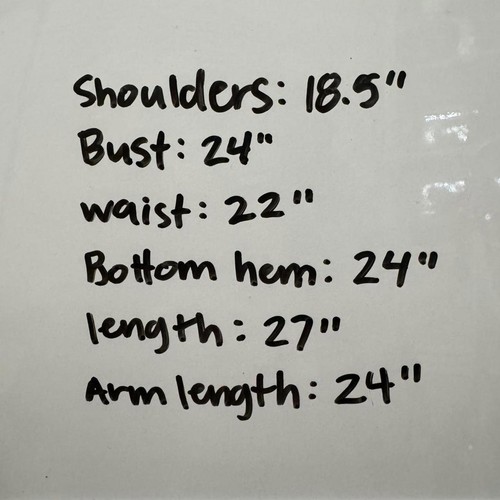 Shoulders: 18.5"
Bust: 24"
waist: 22"
Bottom hem: 24"
length: 27"
Arm length: 24"